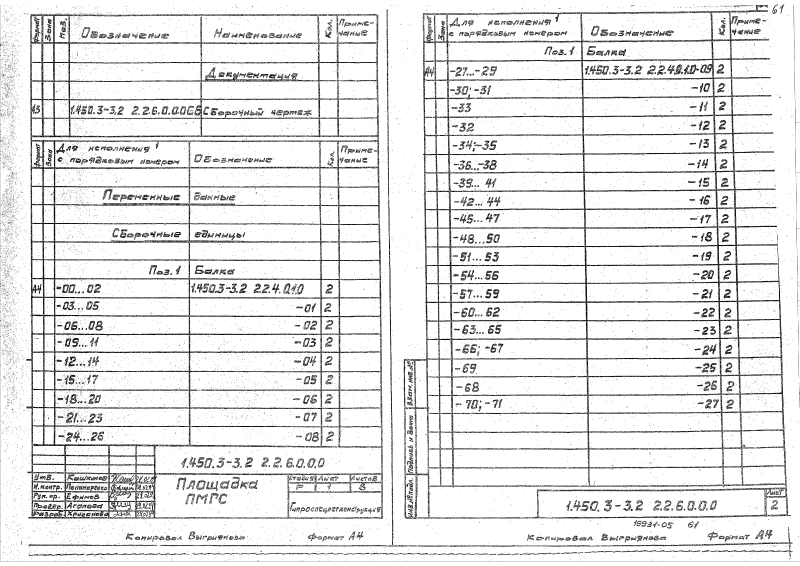 Формат Зона Поз. Обозначение Наименование Кол. Приме-чание
Документация
А3 1.450.3-3.2 2.2.6.0.0.0СБ Сборочный чертеж
Формат Зона Для исполнения¹ с порядковым номером Обозначение Кол. Приме-чание
Переменные данные
Сборочные единицы
Поз. 1 Балка
А4 -00...02 1.450.3-3.2 2.2.4.0.1.0 2
-03...05 -01 2
-06...08 -02 2
-09...11 -03 2
-12...14 -04 2
-15...17 -05 2
-18...20 -06 2
-21...23 -07 2
-24...26 -08 2
1.450.3-3.2 2.2.6.0.0.0
Утв.
Н.контр. Пономаренко
Рук. пр. Ефимов
Провер. Агапова
Разраб.
Площадка ПМГС
Стадия Лист Листов
Р 1 8
Гипроспецлегконструкция
Копировал Выгриянова Формат А4
61
Формат Зона Для исполнения¹ с порядковым номером Обозначение Кол. Приме-чание
Поз. 1 Балка
А4 -27...-29 1.450.3-3.2 2.2.4.0.1.0-09 2
-30; -31 -10 2
-33 -11 2
-32 -12 2
-34; -35 -13 2
-36...-38 -14 2
-39... 41 -15 2
-42... 44 -16 2
-45... 47 -17 2
-48... 50 -18 2
-51... 53 -19 2
-54... 56 -20 2
-57... 59 -21 2
-60... 62 -22 2
-63... 65 -23 2
-66; -67 -24 2
-69 -25 2
-68 -26 2
-70; -71 -27 2
Инв.№ подл. Подпись и дата Взам. инв. №
1.450.3-3.2 2.2.6.0.0.0
Лист
2
19931-05 61
Копировал Выгриянова Формат А4